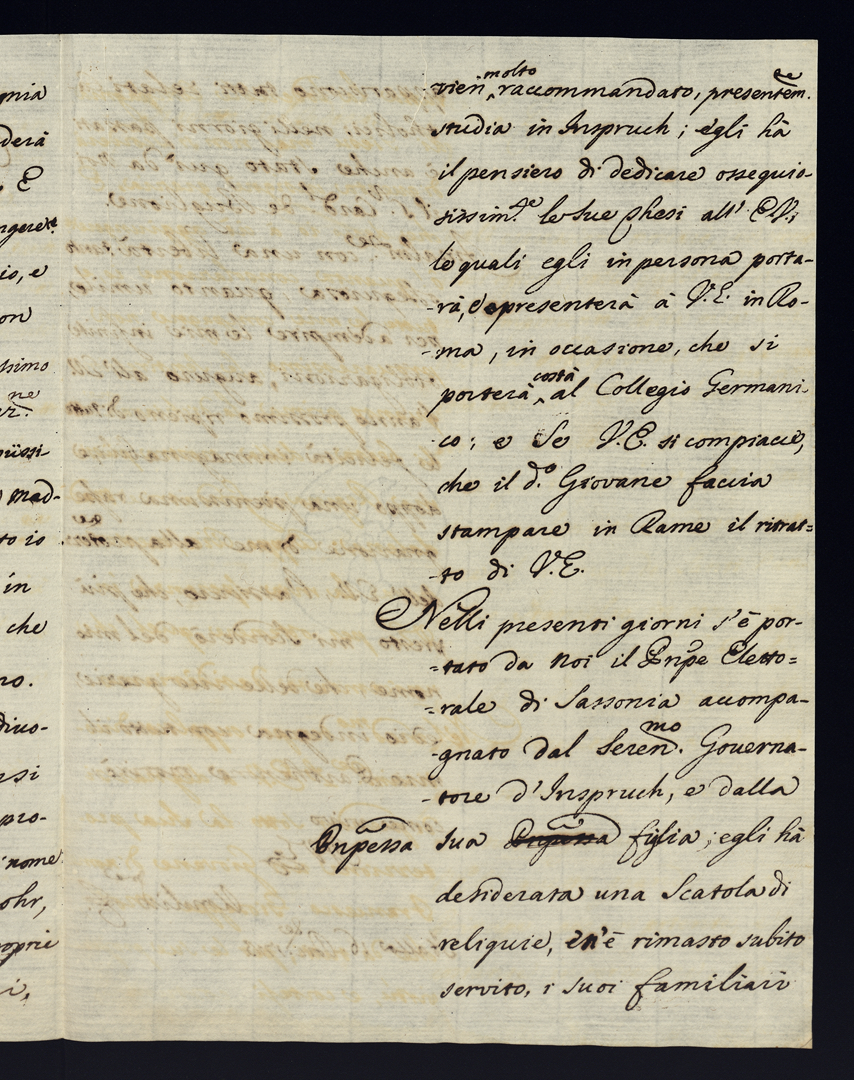 gnia
derà
, E
ngere
io, e
on
ssimo
ne
püssi
Mad-
to io
in
che
no.
divo-
ssi
pro-
nome
ohr,
oprie
i,
vien molto raccommandato, presentem.te
studia in Inspruch; egli hà
il pensiero di dedicare ossequio-
sissim.te le sue thesi all' E.V.;
le quali egli in persona porta-
-rà, e presenterà à V.E. in Ro-
-ma, in occasione, che si
porterà costà al Collegio Germani-
co; e se V.E. si compiacce,
che il d.o Giovane faccia
stampare in Rame il ritrat=
-to di V.E.
Nelli presenti giorni s'è por-
=tato da noi il Pnpe Eletto=
=rale di Sassonia accompa-
-gnato dal Seren.mo Governa-
-tore d'Inspruch, e dalla
sua Pnpessa figlia; egli hà
Pnpessa
desiderata una Scatola di
reliquie, e n'è rimasto subito
servito, i suoi familiari